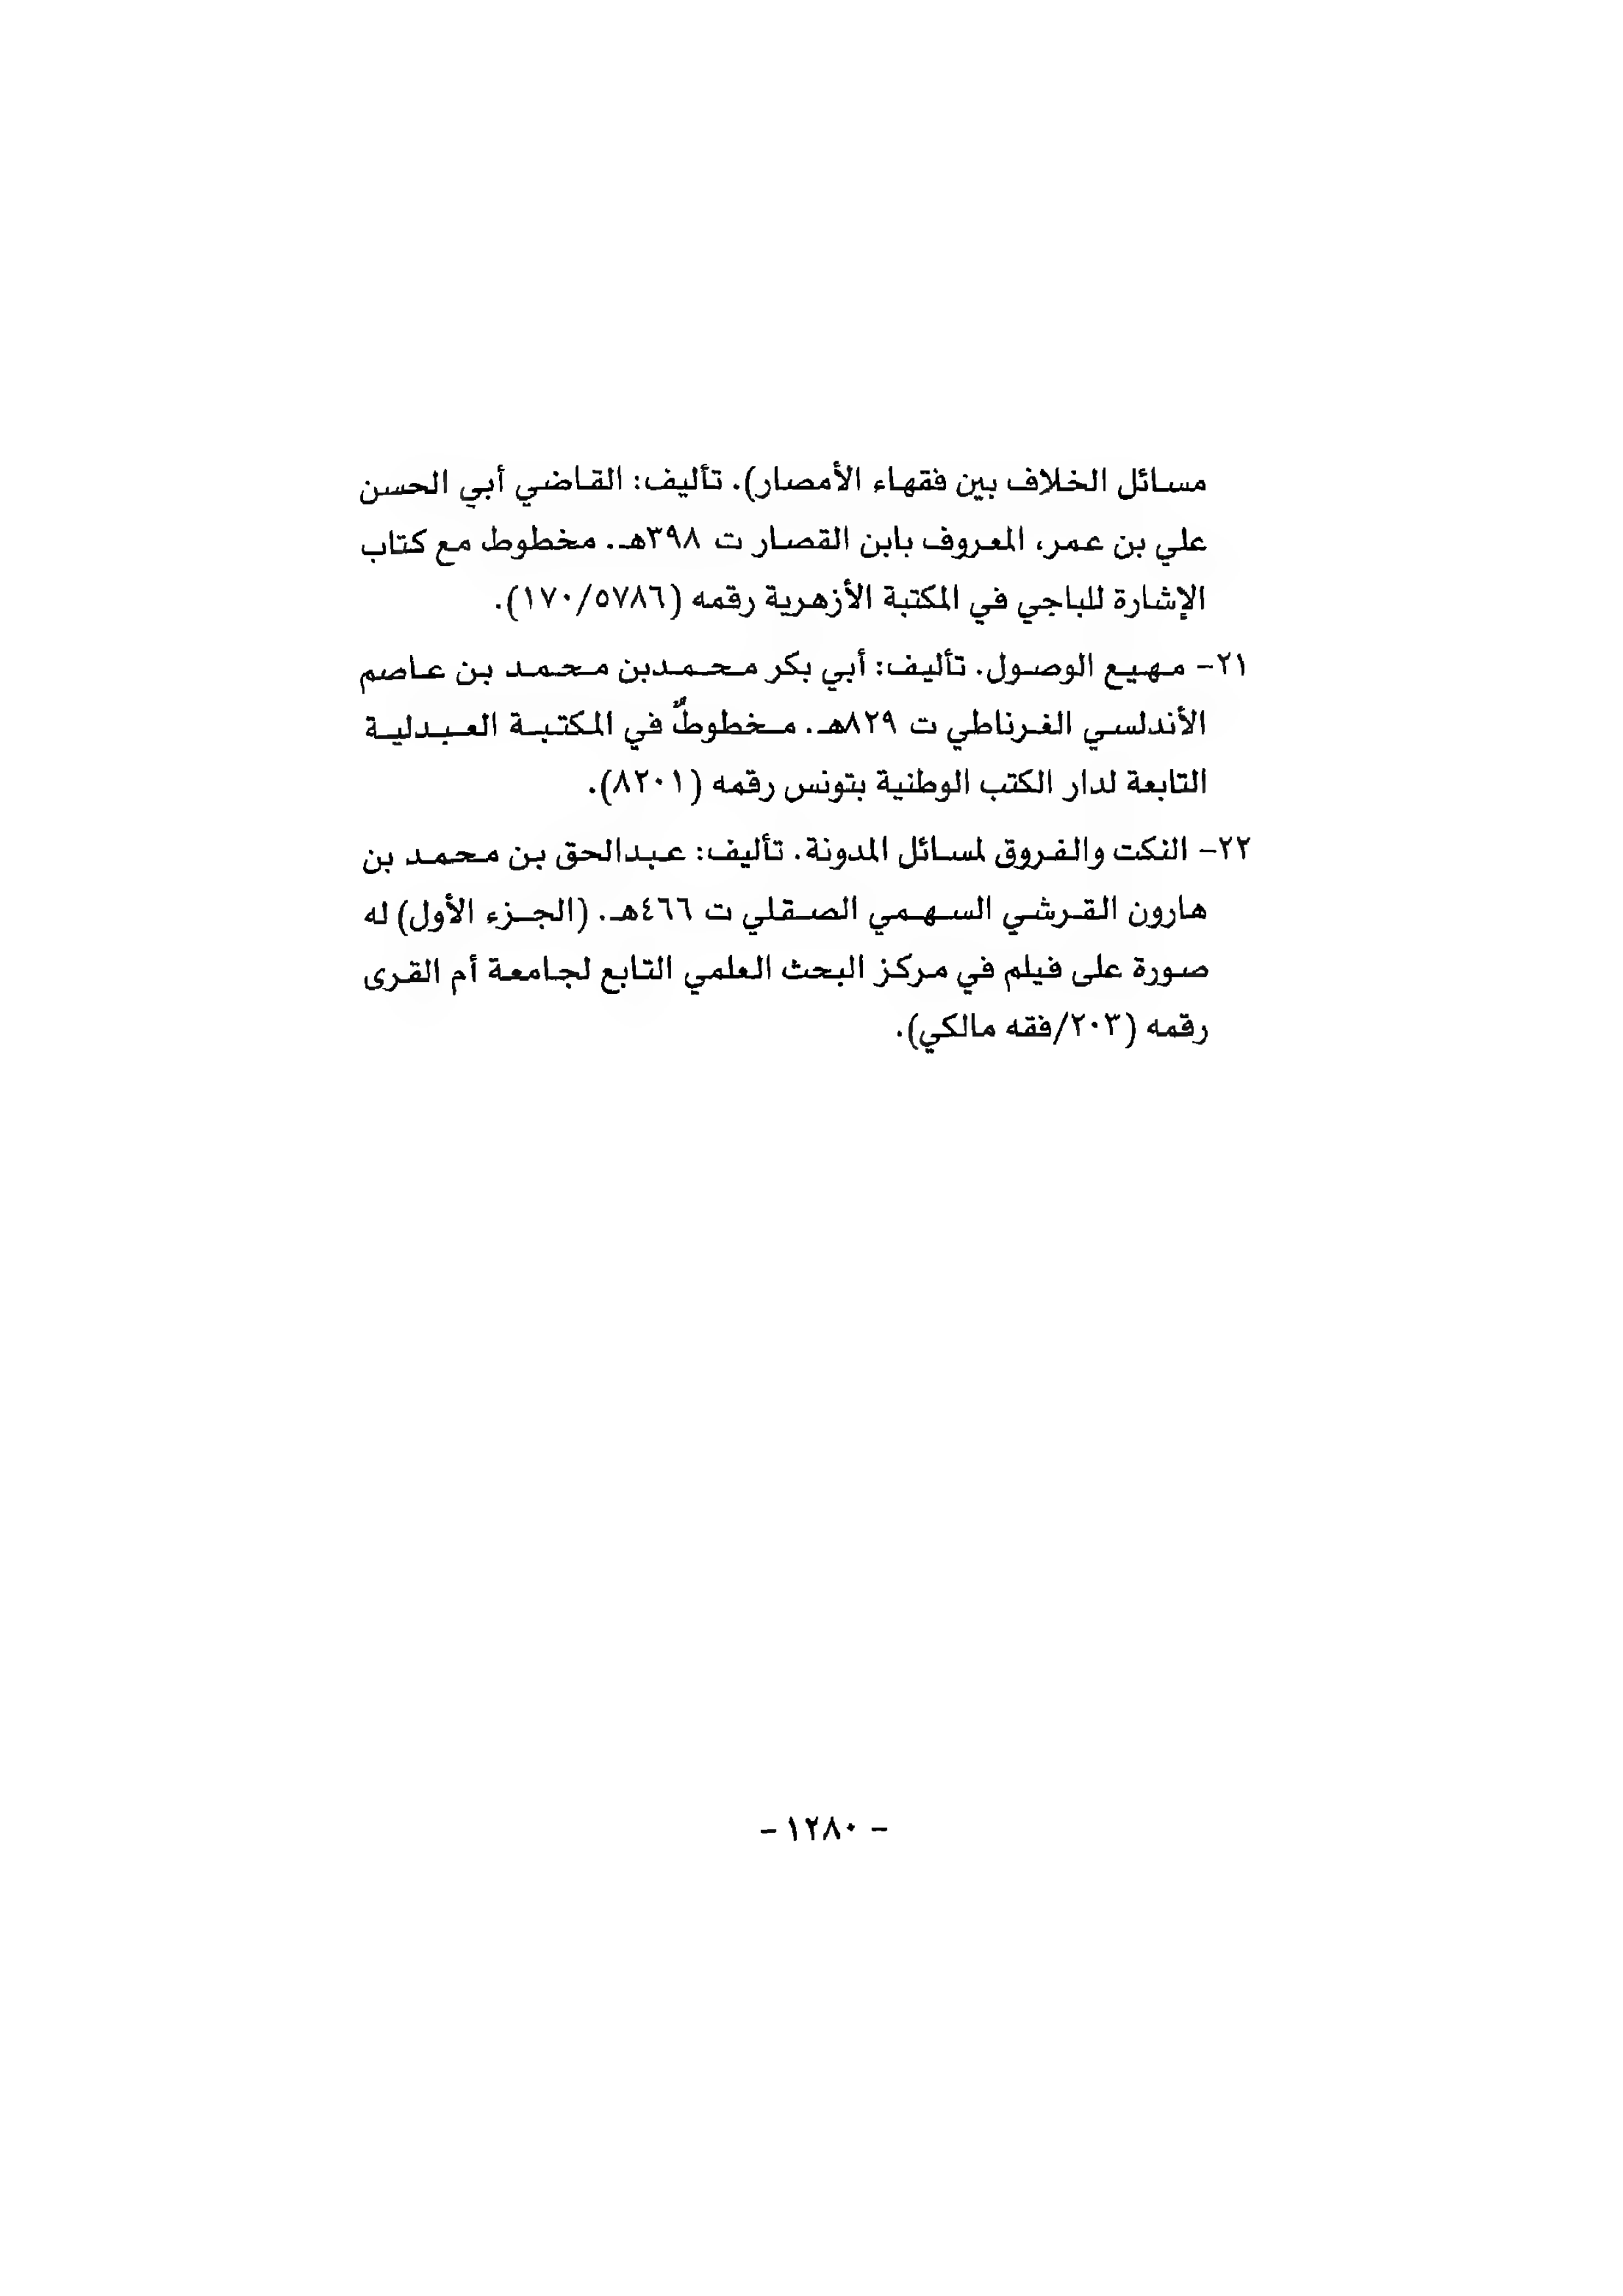 مسائل الخلاف بين فقهاء الأمصار). تأليف: القاضي أبي الحسن
علي بن عمر، المعروف بابن القصار ت ٣٩٨هـ. مخطوط مع كتاب
الإشارة للباجي في المكتبة الأزهرية رقمه (١٧٠/٥٧٨٦).
٢١- مهيع الوصول. تأليف: أبي بكر محمدبن محمد بن عاصم
الأندلسي الغرناطي ت ٨٢٩هـ. مخطوطٌ في المكتبة العبدلية
التابعة لدار الكتب الوطنية بتونس رقمه (٨٢٠١).
٢٢- النكت والفروق لمسائل المدونة. تأليف: عبدالحق بن محمد بن
هارون القرشي السهمي الصقلي ت ٤٦٦هـ. (الجزء الأول) له
صورة على فيلم في مركز البحث العلمي التابع لجامعة أم القرى
رقمه (٢٠٣/فقه مالكي).
- ١٢٨٠ -